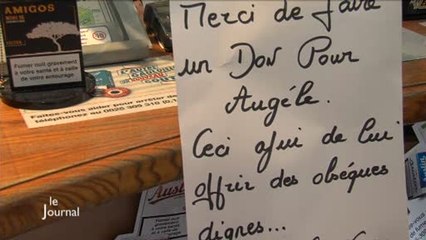 AMIGOS
Fumer nuit gravement
à votre santé et à celle
de votre entourage
Faites-vous aider pour arrêter de
téléphonez au 0825 309 310 (0,1
Merci de faire
un Don Pour
Angéle.
Ceci afin de lui
offrir des obséques
dignes...
le
Journal